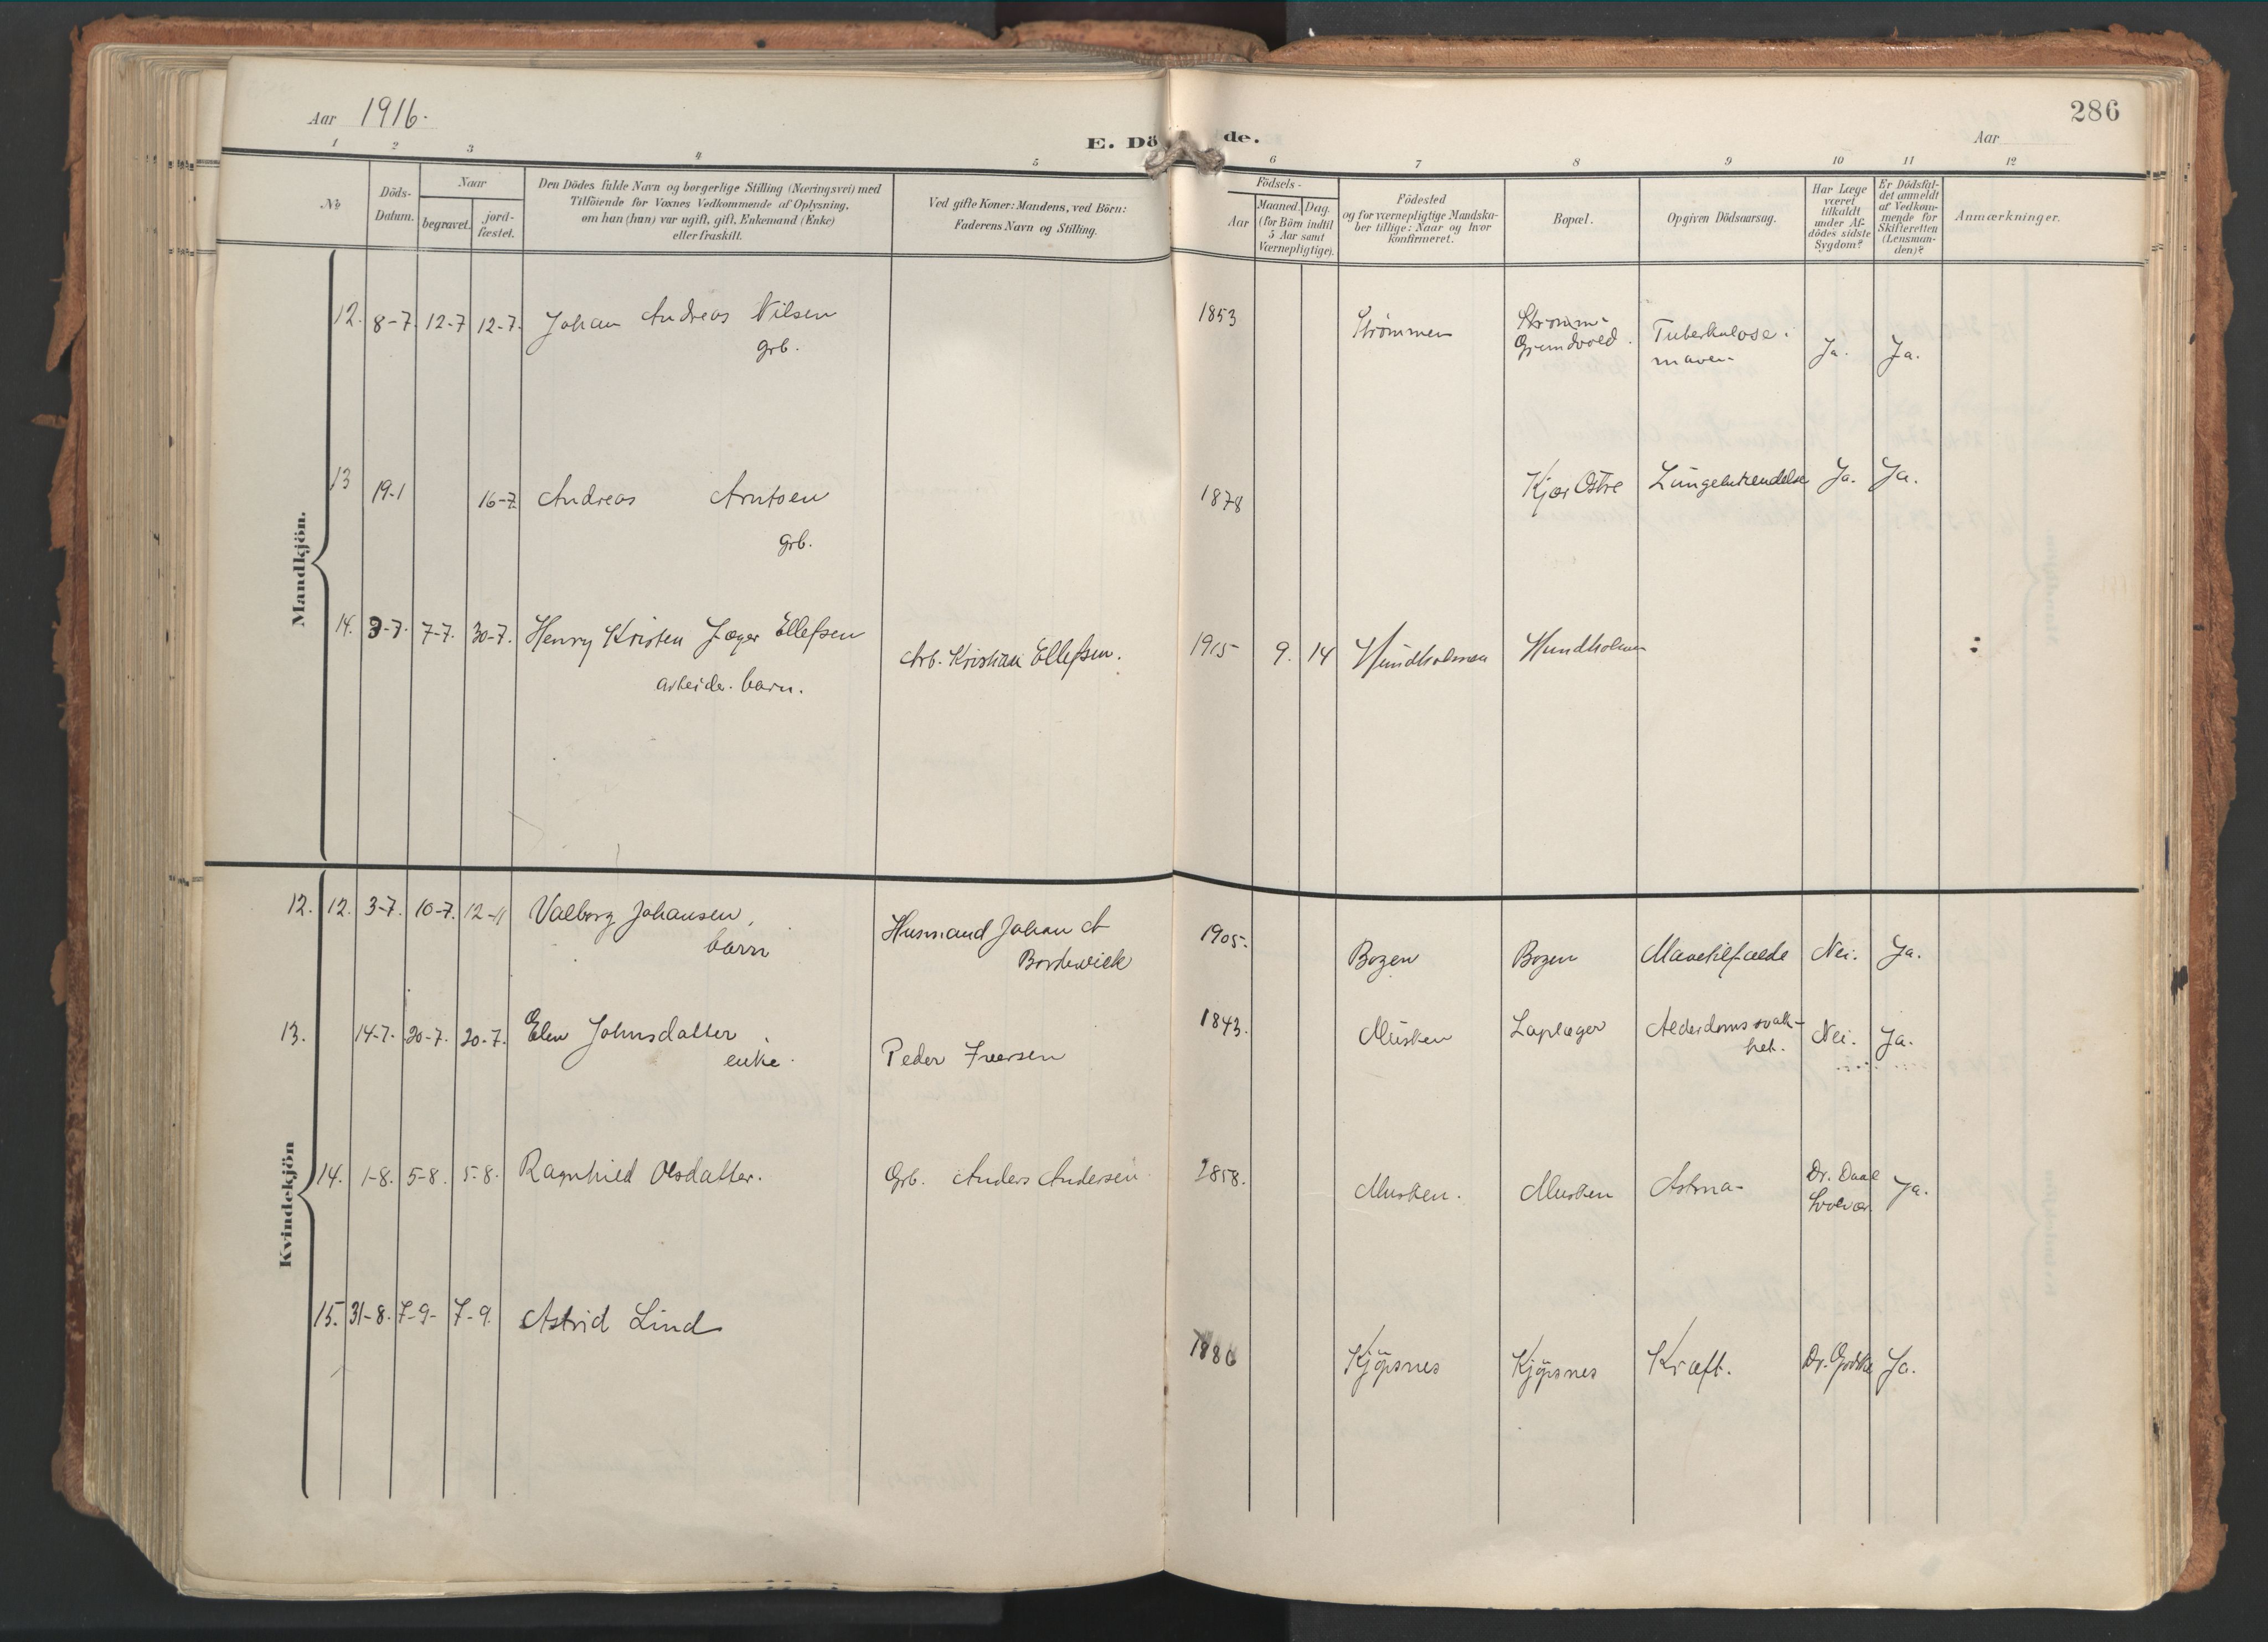 Aar 1916.
E. Dö de.
286
Aar
1 2 3 4 5 6 7 8 9 10 11 12
No
Döds-
Datum.
Naar
begravet.
jord-
fæstet.
Den Dödes fulde Navn og borgerlige Stilling (Næringsvei) med
Tilföiende for Voxnes Vedkommende af Oplysning,
om han (hun) var ugift, gift, Enkemand (Enke)
eller fraskilt.
Ved gifte Koner: Mandens, ved Börn:
Faderens Navn og Stilling.
Födsels-
Aar
Maaned. Dag.
(for Börn indtil
5 Aar samt
Værnepligtige).
Födested
og for værnepligtige Mandska-
ber tillige: Naar og hvor
konfirmeret.
Bopæl.
Opgiven Dödsaarsag.
Har Læge
været
tilkaldt
under Af-
dödes sidste
Sygdom?
Er Dödsfal-
det anmeldt
af Vedkom-
mende for
Skifteretten
(Lensman-
den)?
Anmærkninger.
Mandkjön.
12. 8-7. 12-7 12-7. Johan Andreas Nilsen 1853 Strømmen Strømm-
grb. Grundvold. Tuberkulose i
maven Ja. Ja.
13 19-1 16-7 Andreas Arntsen 1878 Kjær Østre Lungebetendelse Ja. Ja.
grb.
14. 3-7. 7-7. 30-7. Henry Kristen Jæger Ellefsen Arb. Kristian Ellefsen. 1915 9. 14 Hundholmen Hundholmen
arbeider barn.
Kvindekjön
12. 12. 3-7. 10-7. 12-11 Valborg Johansen, Husmand Johan A 1905. Bogen Bogen Mavetilfælde Nei. Ja.
barn Bordewick
13. 14-7. 20-7. 20-7. Elen Johnsdatter Peder Iversen 1843. Musken Laplæger Alderdomssvak-
enke. het. Nei. Ja.
14. 1-8. 5-8. 5-8. Ragnhild Olsdatter. Grb. Anders Andersen 1858. Musken. Musken Astma- Dr. Daae
Svolvær Ja.
15. 31-8. 7-9- 7-9. Astrid Lind 1886 Kjöpsnes Kjöpsnes Kræft. Dr. Ja.